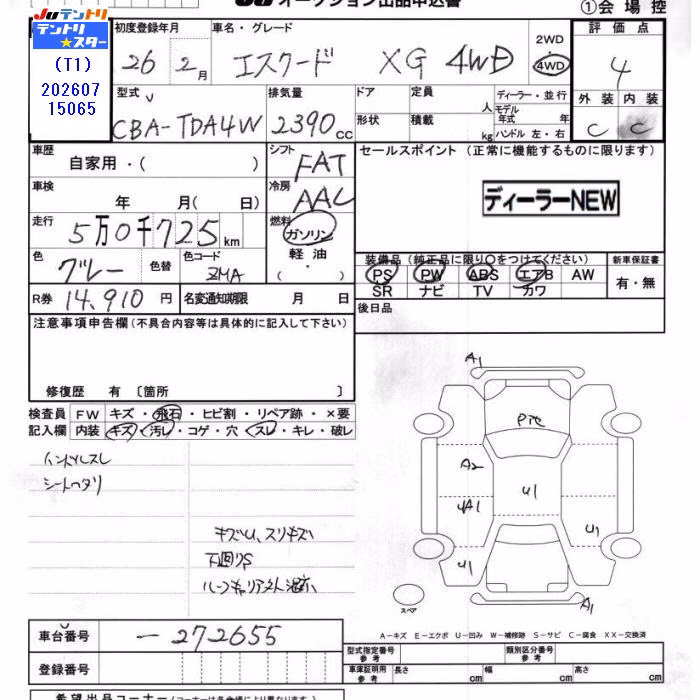 JU オークション出品申込書
①会場控
JUテントリ
テントリ★スター
(T1)
202607
15065
初度登録年月 車名・グレード 2WD 4WD 評価点
26年2月 エスクード XG 4WD 4
型式 排気量 ドア 定員 人 ディーラー・並行 外装 内装
CBA-TDA4W 2390cc 形状 積載 kg モデル年式 年 ハンドル 左・右 C C
車歴 自家用・( ) シフト FAT セールスポイント (正常に機能するものに限ります)
車検 年 月( 日) 冷房 AAC
ディーラーNEW
走行 5万0千725km 燃料 ガソリン 軽油 ・( )
色 グレー 色替 色コード ZMA
装備品 (純正品に限り○をつけてください) 新車保証書
PS PW ABS エアB AW 有・無
SR ナビ TV カワ
R券 14,910円 名変通知期限 月 日
後日品
注意事項申告欄(不具合内容等は具体的に記入して下さい)
修復歴 有 〔箇所 〕
検査員 FW キズ・飛石・ヒビ割・リペア跡・×要
記入欄 内装 キズ・汚レ・コゲ・穴・スレ・キレ・破レ
ハンドルスレ
シートヘタリ
キズU、スリキズ
下回りS
A1
Pte
A2
UA1
U1
U1
U1
A1
スペア
A-キズ E-エクボ U-凹み W-補修跡 S-サビ C-腐食 XX-交換済
車台番号 -272655
型式指定番号 参考 類別区分番号 参考
登録番号
車庫証明用 参考 長さ cm 幅 cm 高さ cm
希望出品コーナー(コーナーは各会場により異なります)